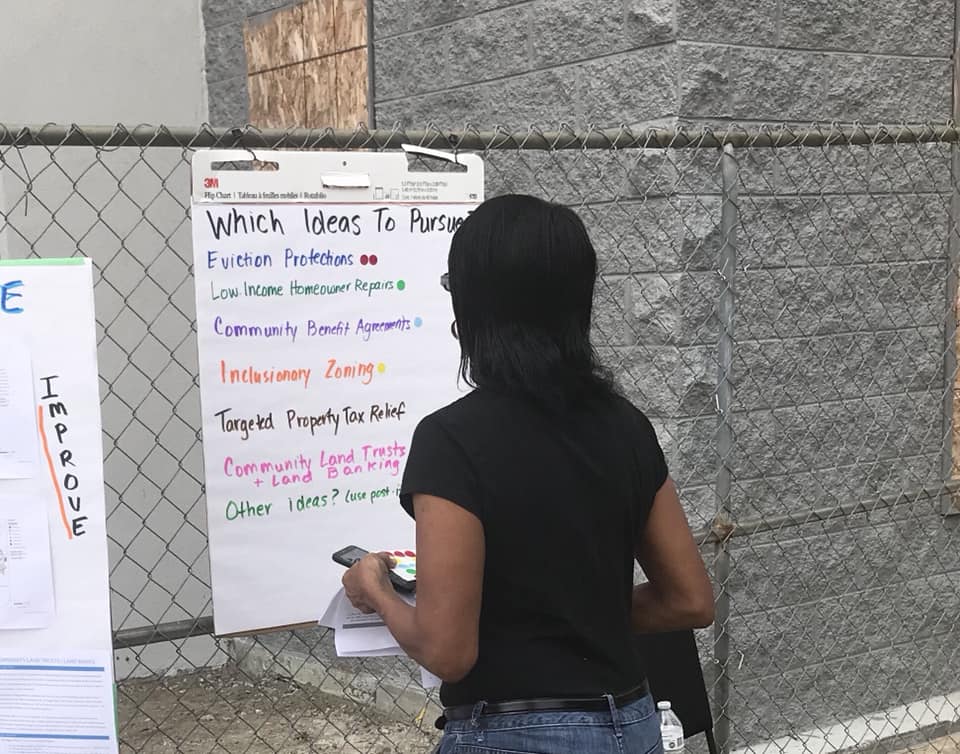 3M
Flip Chart | Tableau à feuilles mobiles | Rotafolio
Which Ideas To Pursue?
Eviction Protections
Low-Income Homeowner Repairs
Community Benefit Agreements
Inclusionary Zoning
Targeted Property Tax Relief
Community Land Trusts
+ Land Banking
Other ideas? (use post-i
E
IMPROVE
COMMUNITY LAND TRUSTS / LAND BANKS